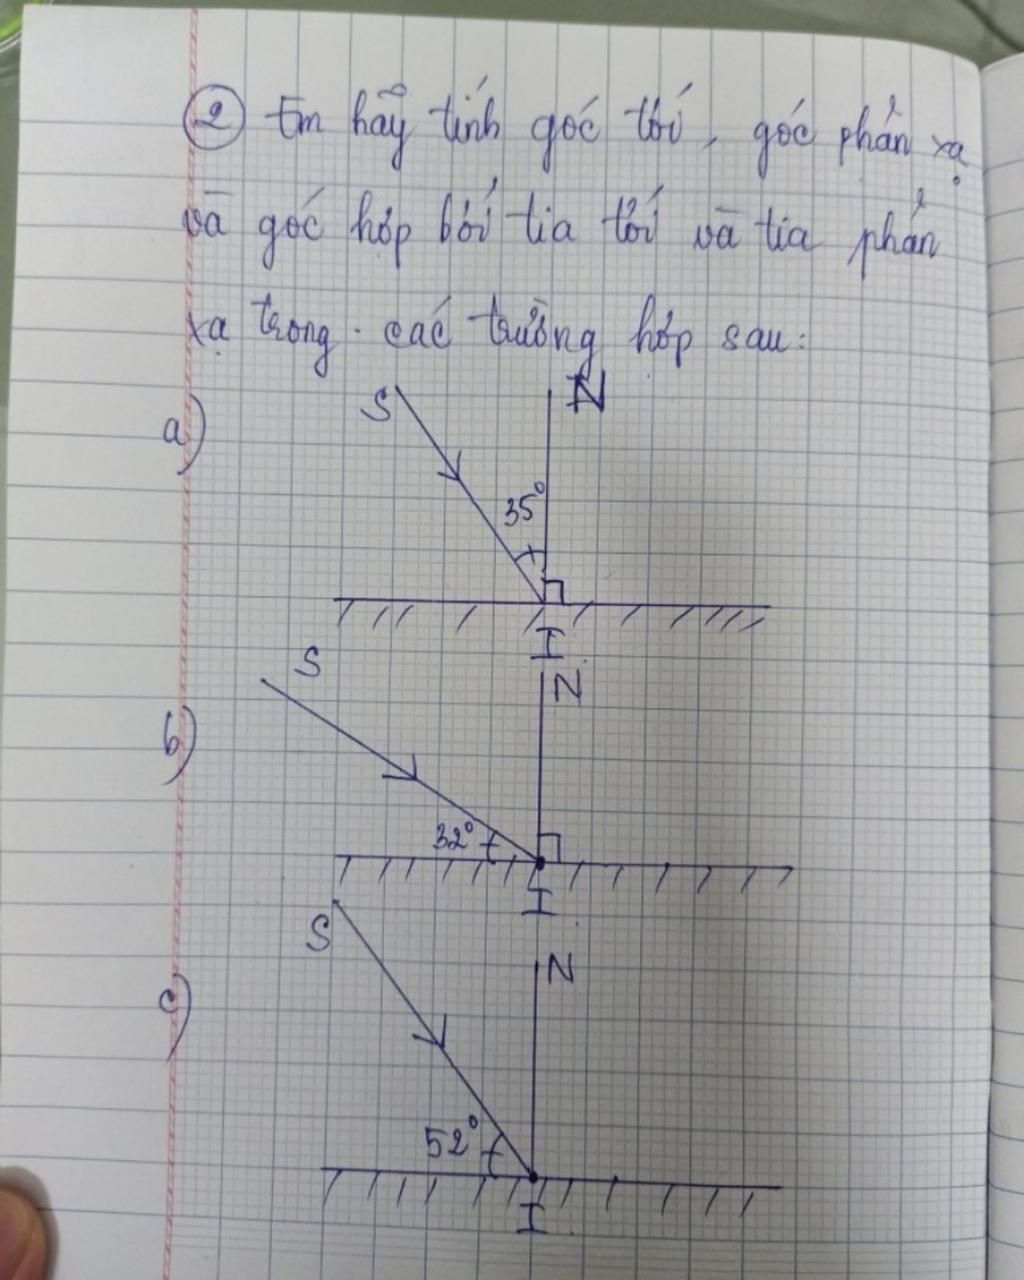 ② Em hãy tính góc tới, góc phản xạ
và góc hợp bởi tia tới và tia phản
xạ trong các trường hợp sau:
a)
S
N
35°
I
b)
S
N
32°
I
c)
S
N
52°
I